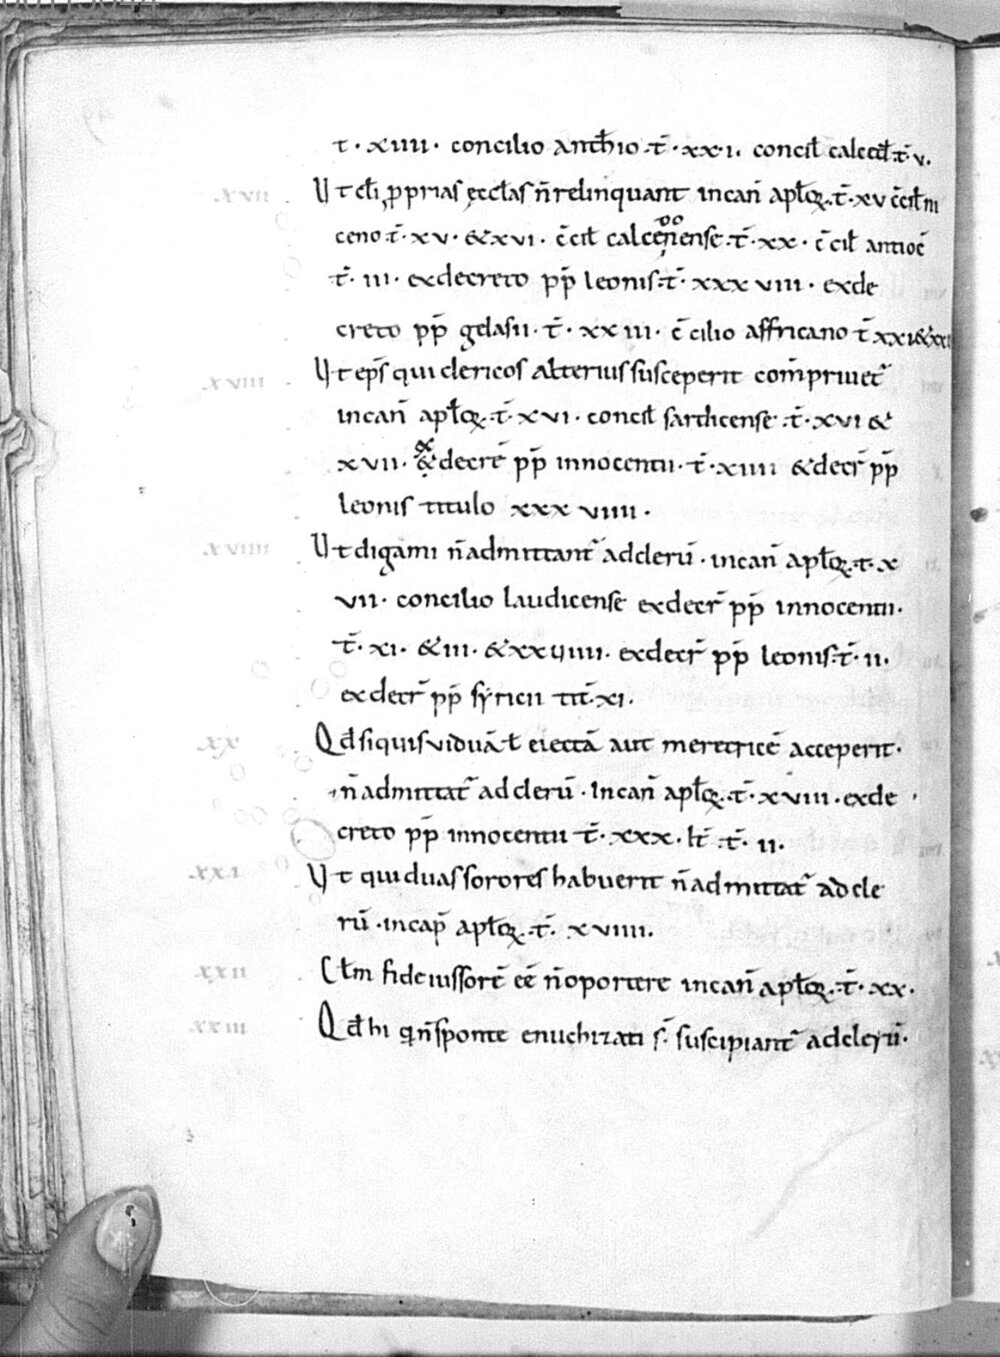 t̄ · xiiii · concilio anth̄io t̄ · xxi · concil̄ calced̄ t̄ · v ·
xvii Ut cl̄i p̱prias ęccl̄as n̄ relinquant in can̄ apl̄oꝝ · t̄ · xv c̄cil̄ ni
ceno t̄ · xv · & xvi · c̄cil̄ calcenense t̄ · xx · c̄cil̄ antioc̄
t̄ · iii · ex decreto pp̄ leonis t̄ · xxxviii · ex de
creto pp̄ gelasii · t̄ · xxiii · c̄cilio affricano t̄ xxi &
xviii Ut ep̄s qui clericos alterius susceperit com̄priuet᷑
in can̄ apl̄oꝝ t̄ · xvi · concil̄ sardicense · t̄ · xvi &
xvii · & decre᷑ pp̄ innocentii · t̄ · xiiii & decr᷑ pp̄
leonis titulo xxxviiii ·
xviiii Ut digami n̄ admittant᷑ ad clerū · in can̄ apl̄oꝝ · t · x
vii · concilio laudicense ex decr᷑ pp̄ innocentii ·
t̄ · xi · & iii · & xxiiiii · ex decr᷑ pp̄ leonis t̄ · ii ·
ex decr᷑ pp̄ syricii tit̄ · xi ·
xx Qd̄ si quis viduā ł eiectā aut meretricē acceperit ·
n̄ admittat᷑ ad clerū · In can̄ apl̄oꝝ · t̄ · xviii · ex de
creto pp̄ innocentii t̄ · xxx · It̄ · t̄ · ii ·
xxi Ut qui duas sorores habuerit n̄ admittat᷑ ad cle
rū · in cap̄ apl̄oꝝ · t̄ · xviiii ·
xxii Cl̄m fideiussorē eē n̄ oportere in can̄ apl̄oꝝ · t̄ · xx ·
xxiii Qd̄ hi q̱ n̄ sponte enuchizati s̄ suscipiant᷑ ad clerū ·